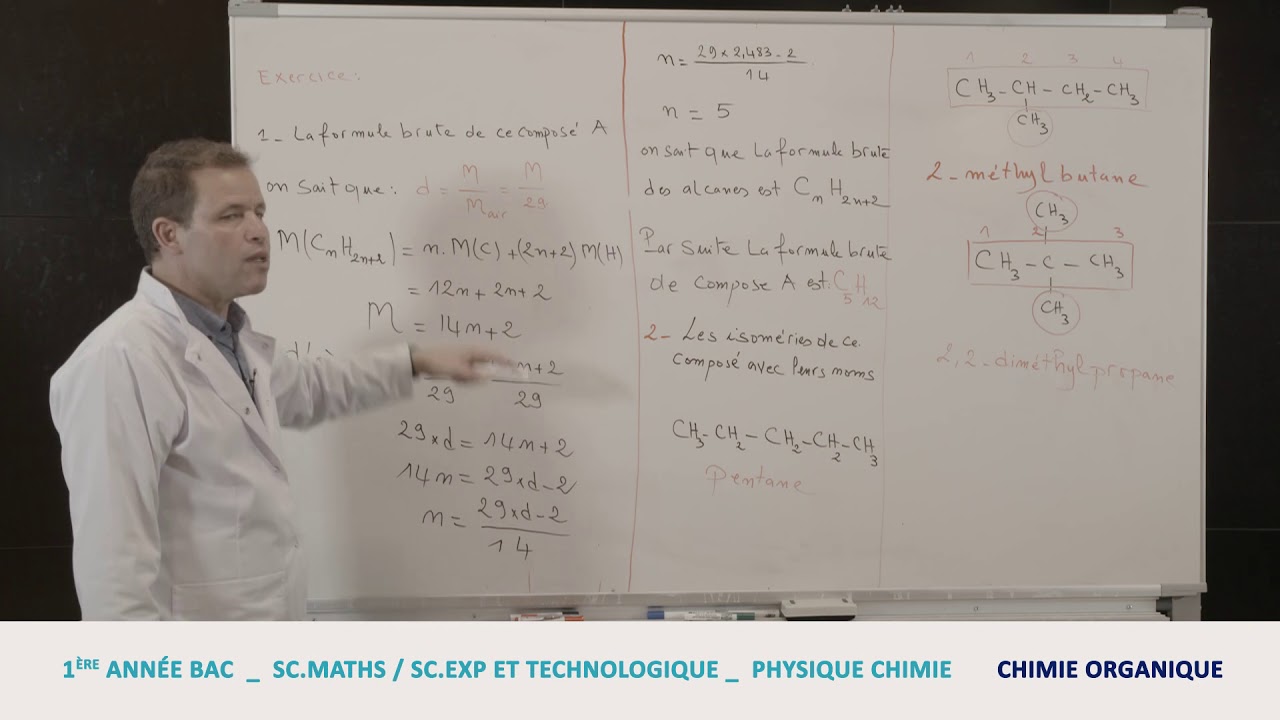 Exercice:
1_ La formule brute de ce composé A
on sait que: d = M/Mair = M/29
M(CnH2n+2) = n.M(C)+(2n+2)M(H)
= 12n + 2n + 2
M = 14n+2
29 29
29xd = 14n+2
14n = 29xd-2
n = 29xd-2/14
n = 29x2,483-2/14
n = 5
on sait que La formule brute
des alcanes est CnH2n+2
Par suite La formule brute
de compose A est: C5H12
2- Les isoméries de ce
Composé avec leurs noms
CH3-CH2-CH2-CH2-CH3
Pentane
1 2 3 4
CH3-CH-CH2-CH3
CH3
2-méthylbutane
CH3
1 2 3
CH3-C-CH3
CH3
2,2-diméthylpropane
1ÈRE ANNÉE BAC _ SC.MATHS / SC.EXP ET TECHNOLOGIQUE _ PHYSIQUE CHIMIE CHIMIE ORGANIQUE